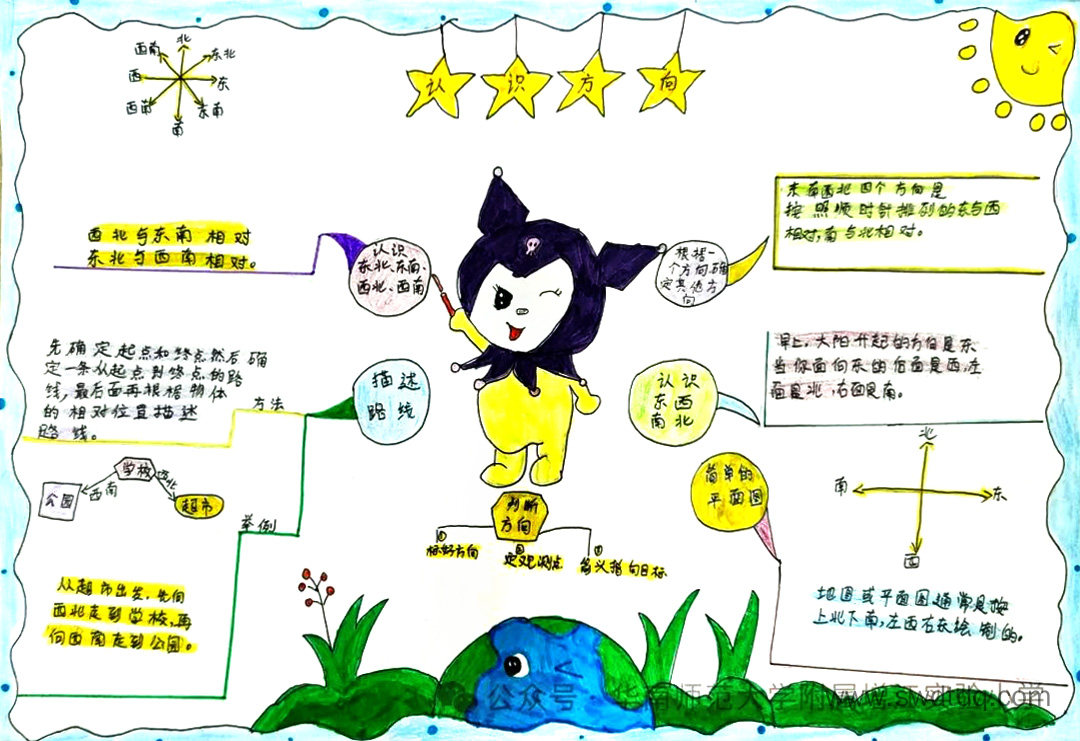 认识方向
北
西南
东北
西
东
西南
东南
南
西北与东南相对
东北与西南相对。
认识
东北、东南、
西北、西南
根据一
个方向确
定其他方
向
东南西北四个方向是
按照顺时针排列的东与西
相对,南与北相对。
先确定起点和终点然后确
定一条从起点到终点的路
线,最后面再根据物体
的相对位置描述
路线。
方法
描述
路线
认识
东西
南北
早上,太阳升起的方向是东
当你面向东时后面是西,左
面是北,右面是南。
学校
西南
公园
超市
举例
从超市出发,先向
西北走到学校,再
向西南走到公园。
判断
方向
①
标好方向
②
定观测点
③
箭头指向目标
简单的
平面图
北
南
东
西
地图或平面图通常是按
上北下南,左西右东绘制的。
公众号
www.swatdq.com